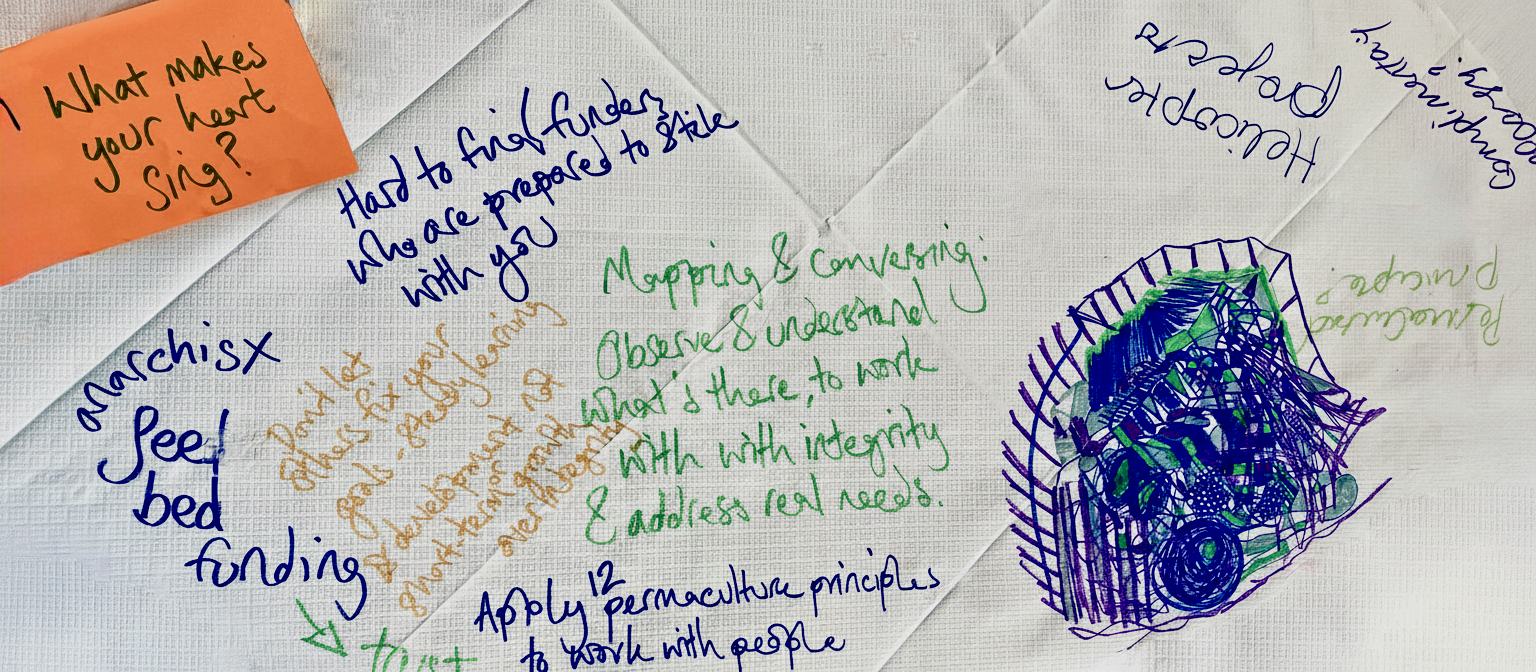 What makes
your heart
sing?
Hard to find funders
who are prepared to stick
with you
anarchisx
feel
bed
funding
trust
Don't let
others fix your
goals - steady learning
& development not
short-term growth
over integrity
Mapping & conversing:
Observe & understand
what's there, to work
with with integrity
& address real needs.
Apply 12 permaculture principles
to work with people
Helicopter
projects
Complimentary
Permaculture
principle?